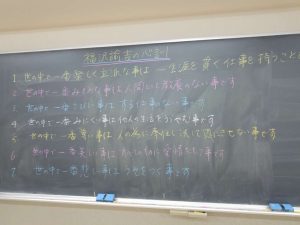 福沢諭吉の心訓
1 世の中で一番楽しく立派な事は 一生涯を貫く仕事を持つこと
2 世の中で一番みじめな事は人間として教養のない事です
3 世の中で一番さびしい事はする仕事のない事です
4 世の中で一番みにくい事は他人の生活をうらやむ事です
5 世の中で一番尊い事は人の為に奉仕し決して恩にきせない事です
6 世の中で一番美しい事はすべての物に愛情をもつ事です
7 世の中で一番悲しい事はうそをつく事です